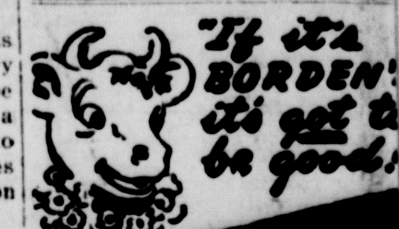 s
y
e
a
o
es
on
"If it's
BORDEN'
it's got t
be good!